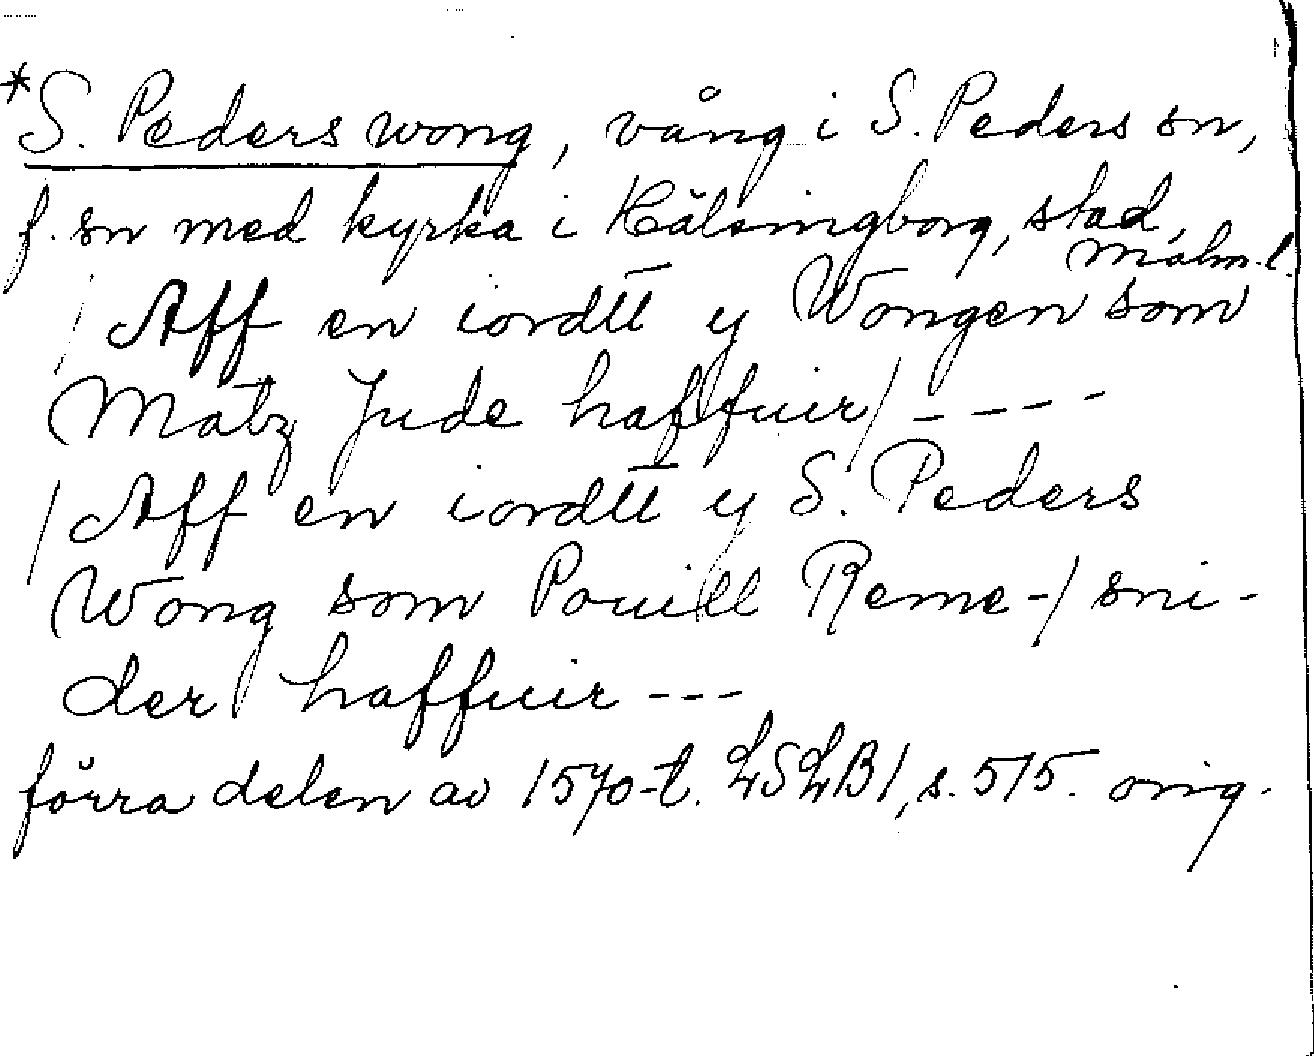 *S. Peders wong, vång i S. Peders sn,
f. sn med kyrka i Hälsingborg, stad,
Malm.l.
/ Aff en iordtt y Wongen som
Matz Jude haffuir/ - - - -
/ Aff en iordtt y S. Peders
Wong som Pouill Reme-/ sni-
der haffuir - - -
förra delen av 1570-t. LSLB1, s. 515. orig.